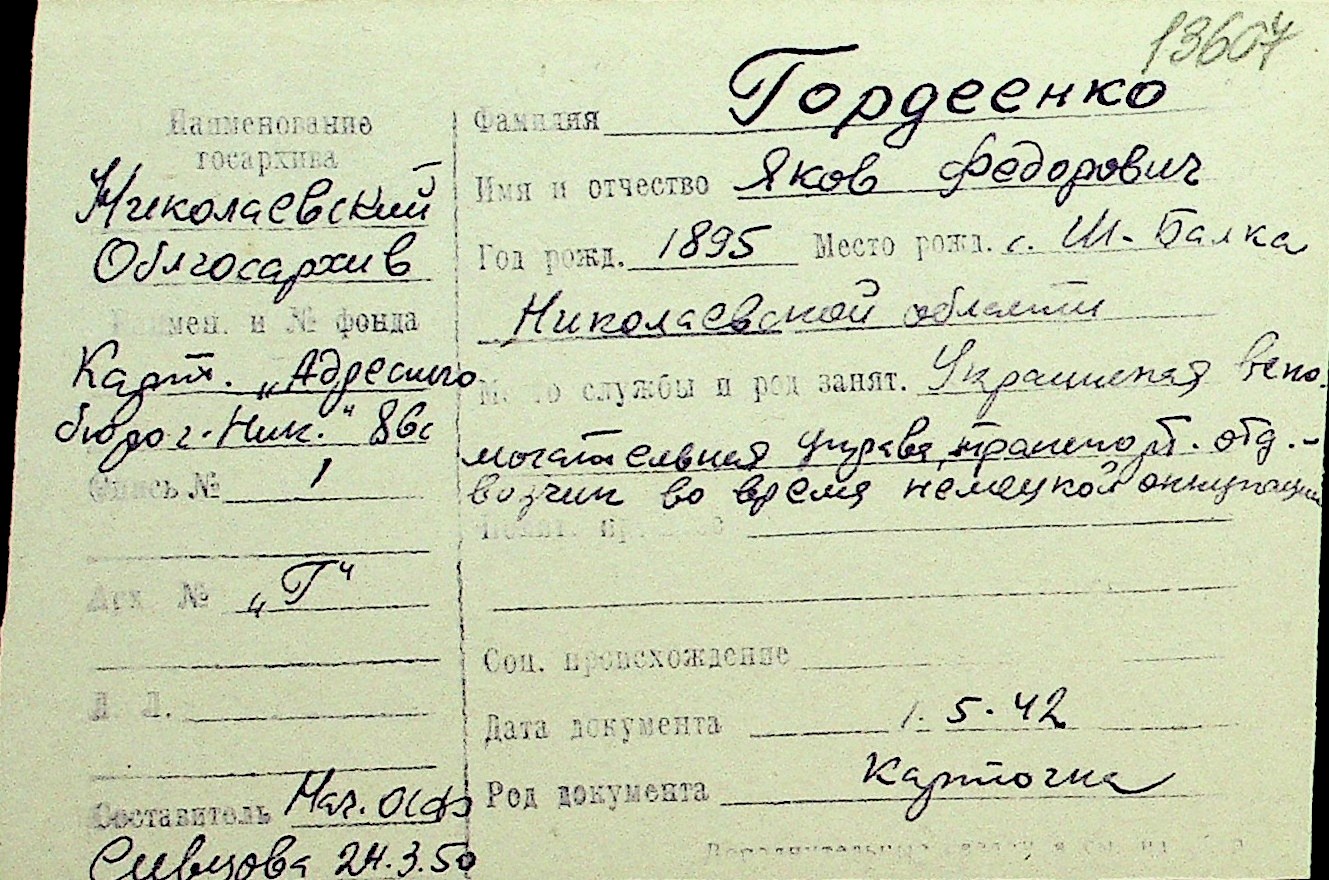 13607
Наименование
госархива
Николаевский
Облгосархив
Наимен. и № фонда
Карт. „Адресного
бюро г. Ник." 86с
Опись № 1
Арх. № „Г"
Л. Л.
Составитель Нач. ОСФ
Сивцова 24.3.50
Фамилия Гордеенко
Имя и отчество Яков Федорович
Год рожд. 1895 Место рожд. с. Ш-Балка
Николаевской области
Место службы и род занят. Украинская вспо-
могательная управа, транспорт. отд. -
возчик во время немецкой оккупации
Соц. происхождение
Дата документа 1. 5. 42
Род документа карточка